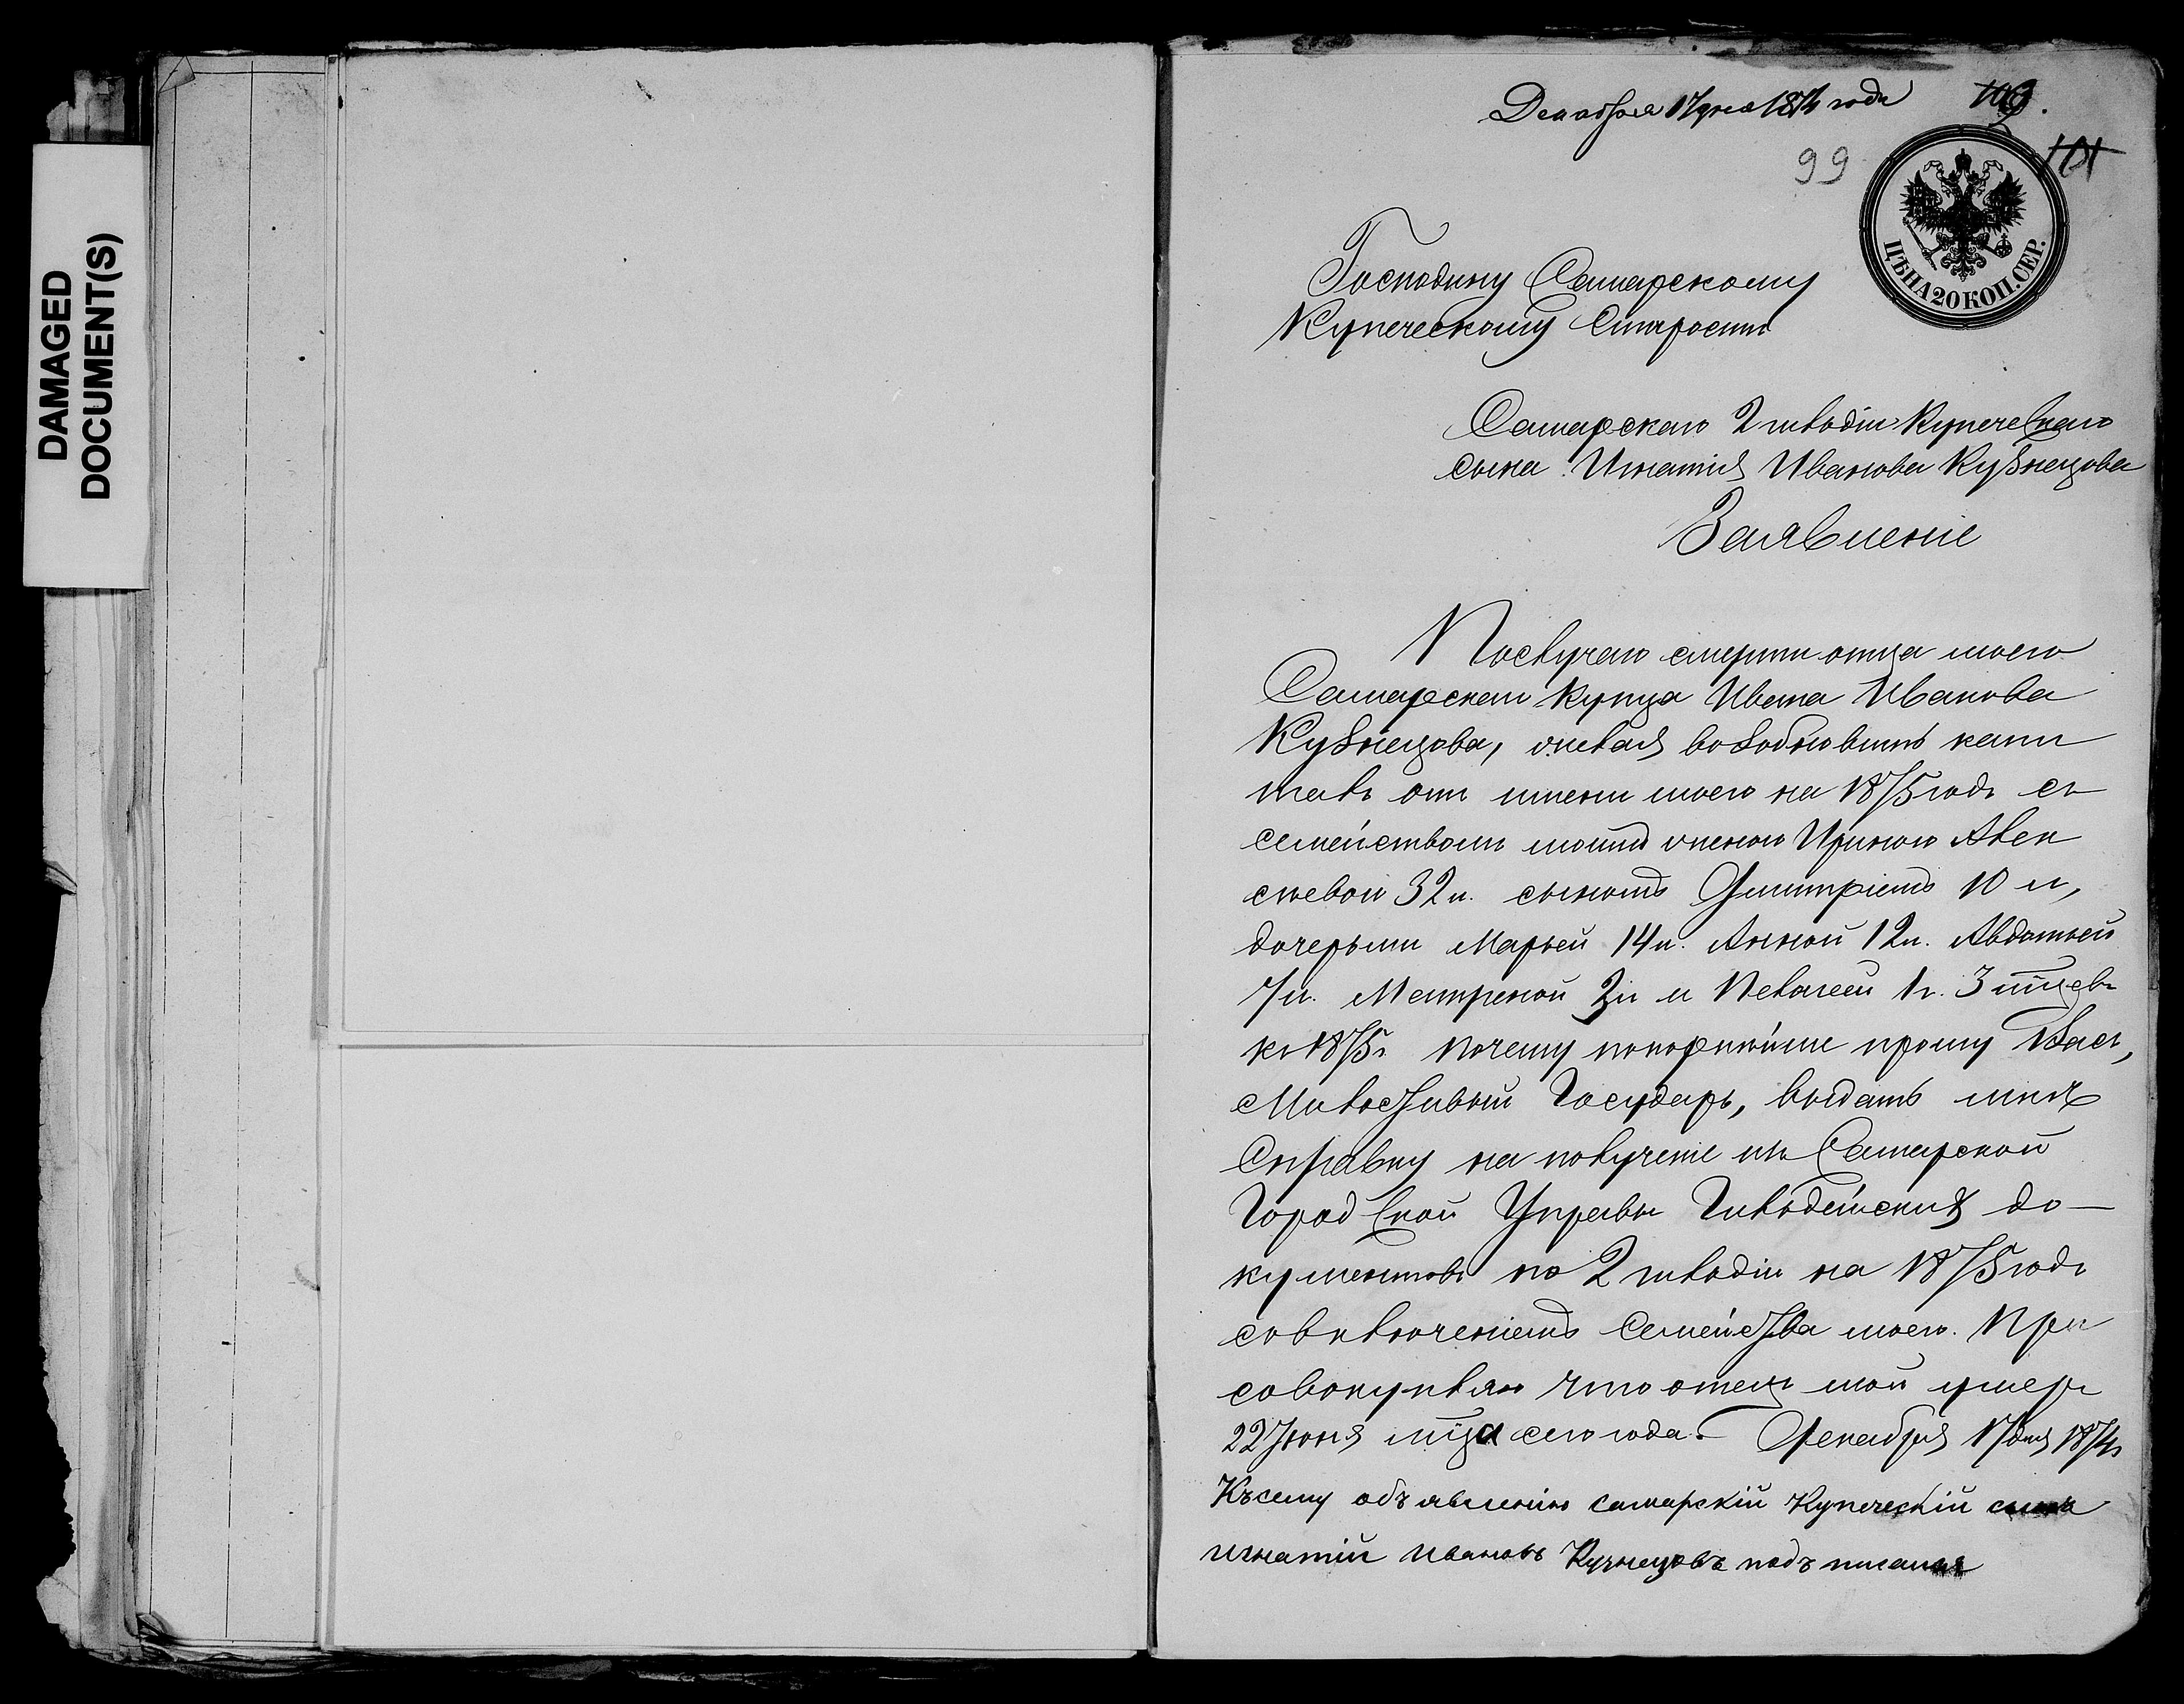 DAMAGED
DOCUMENT(S)
Декабря 17 дня 1874 года
99
101
ЦѢНА 20 КОП. СЕР.
Господину Самарскому
Купеческому Старостѣ
Самарскаго 2 гильдіи Купеческаго
сына Игнатія Иванова Кузнецова
Заявленіе
Послучаю смерти отца моего
Самарскаго купца Ивана Иванова
Кузнецова, желая возобновить капи
талъ отъ имени моего на 1875 годъ съ
семействомъ моимъ женою Ириною Алек
сѣевой 32 л. сыномъ Дмитріемъ 10 л,
дочерьми Марьей 14 л. Анной 12 л. Авдотьей
7 л. Матреной 3 л и Пелагеей 1 г. 3 мцевъ
къ 1875 г. почему покорнѣйше прошу Васъ,
Милостивый Государь, выдать мнѣ
Справку на полученіе изъ Самарской
Городской Управы Гильдейскихъ до—
кументовъ по 2 гильдіи на 1875 годъ
совключеніемъ Семейства моего. При
совокупляю что отецъ мой умеръ
22 Іюня мца сего года. Декабря 17 дня 1874 г
Късему объявленію самарскій Купеческій сынъ
игнатій ивановъ Кузнецовъ подъписался